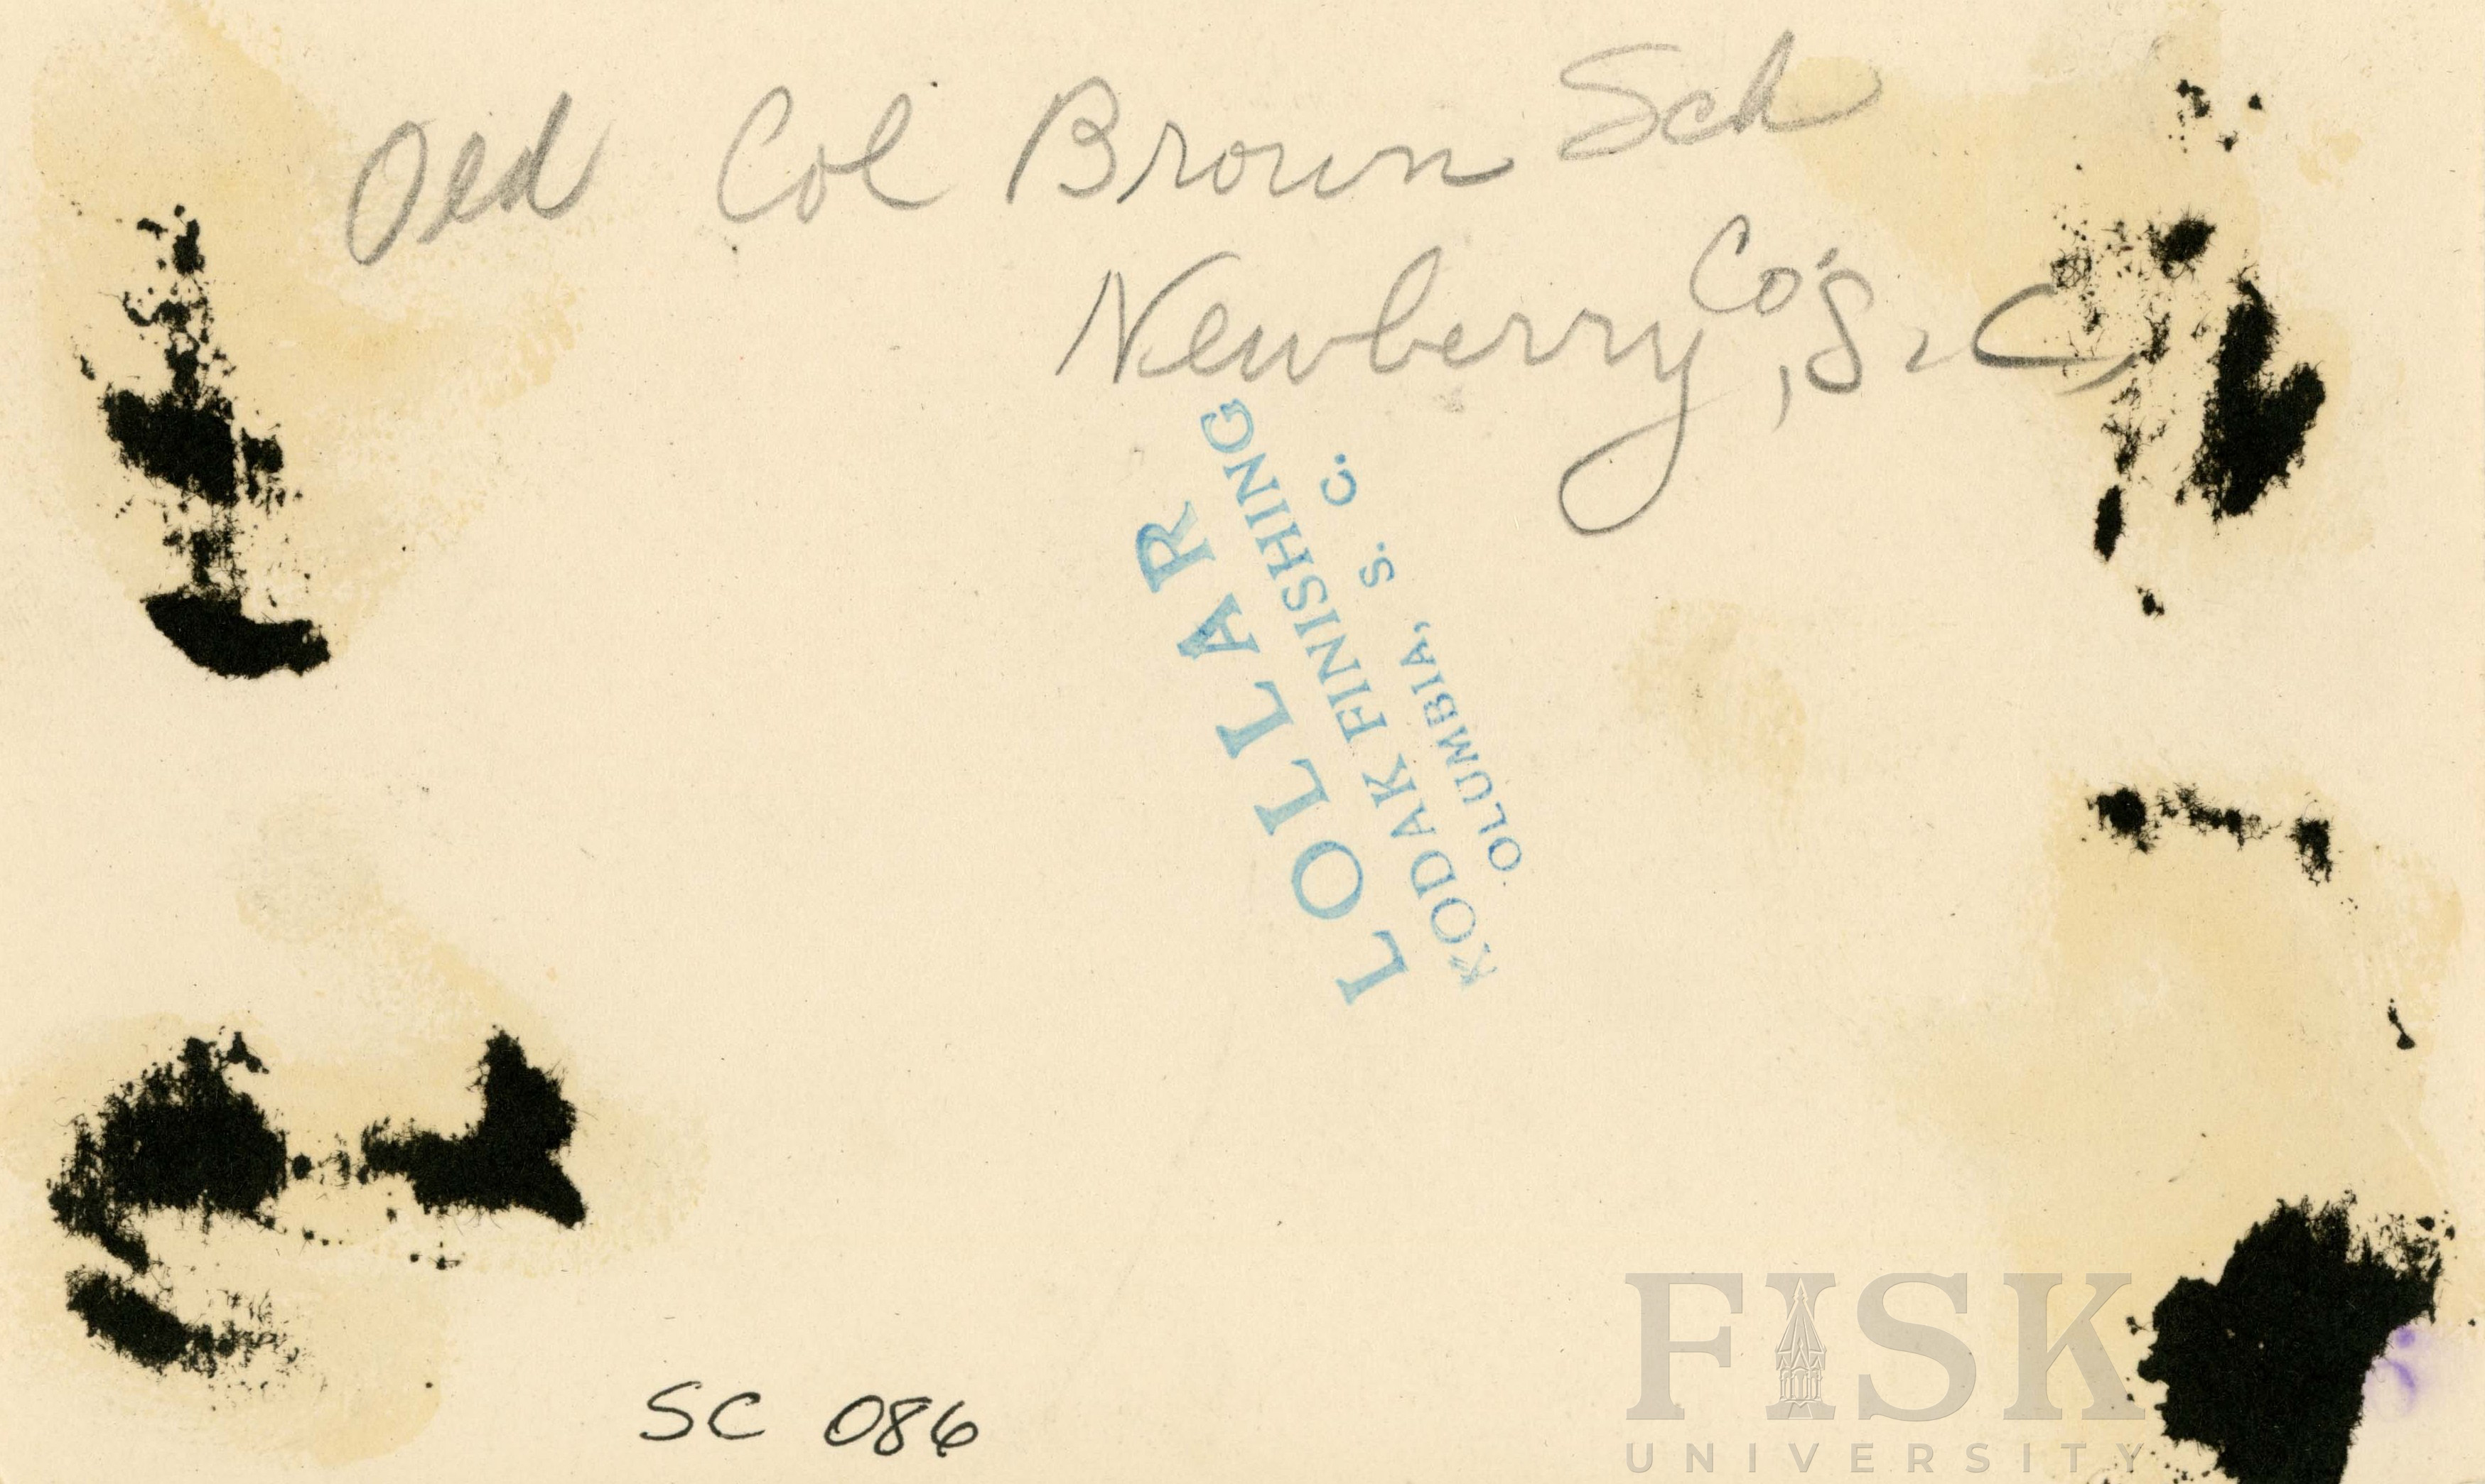 Old Col Brown Sch
Newberry Co., S. C.
LOLLAR
KODAK FINISHING
OLUMBIA, S. C.
SC 086
FISK
UNIVERSITY